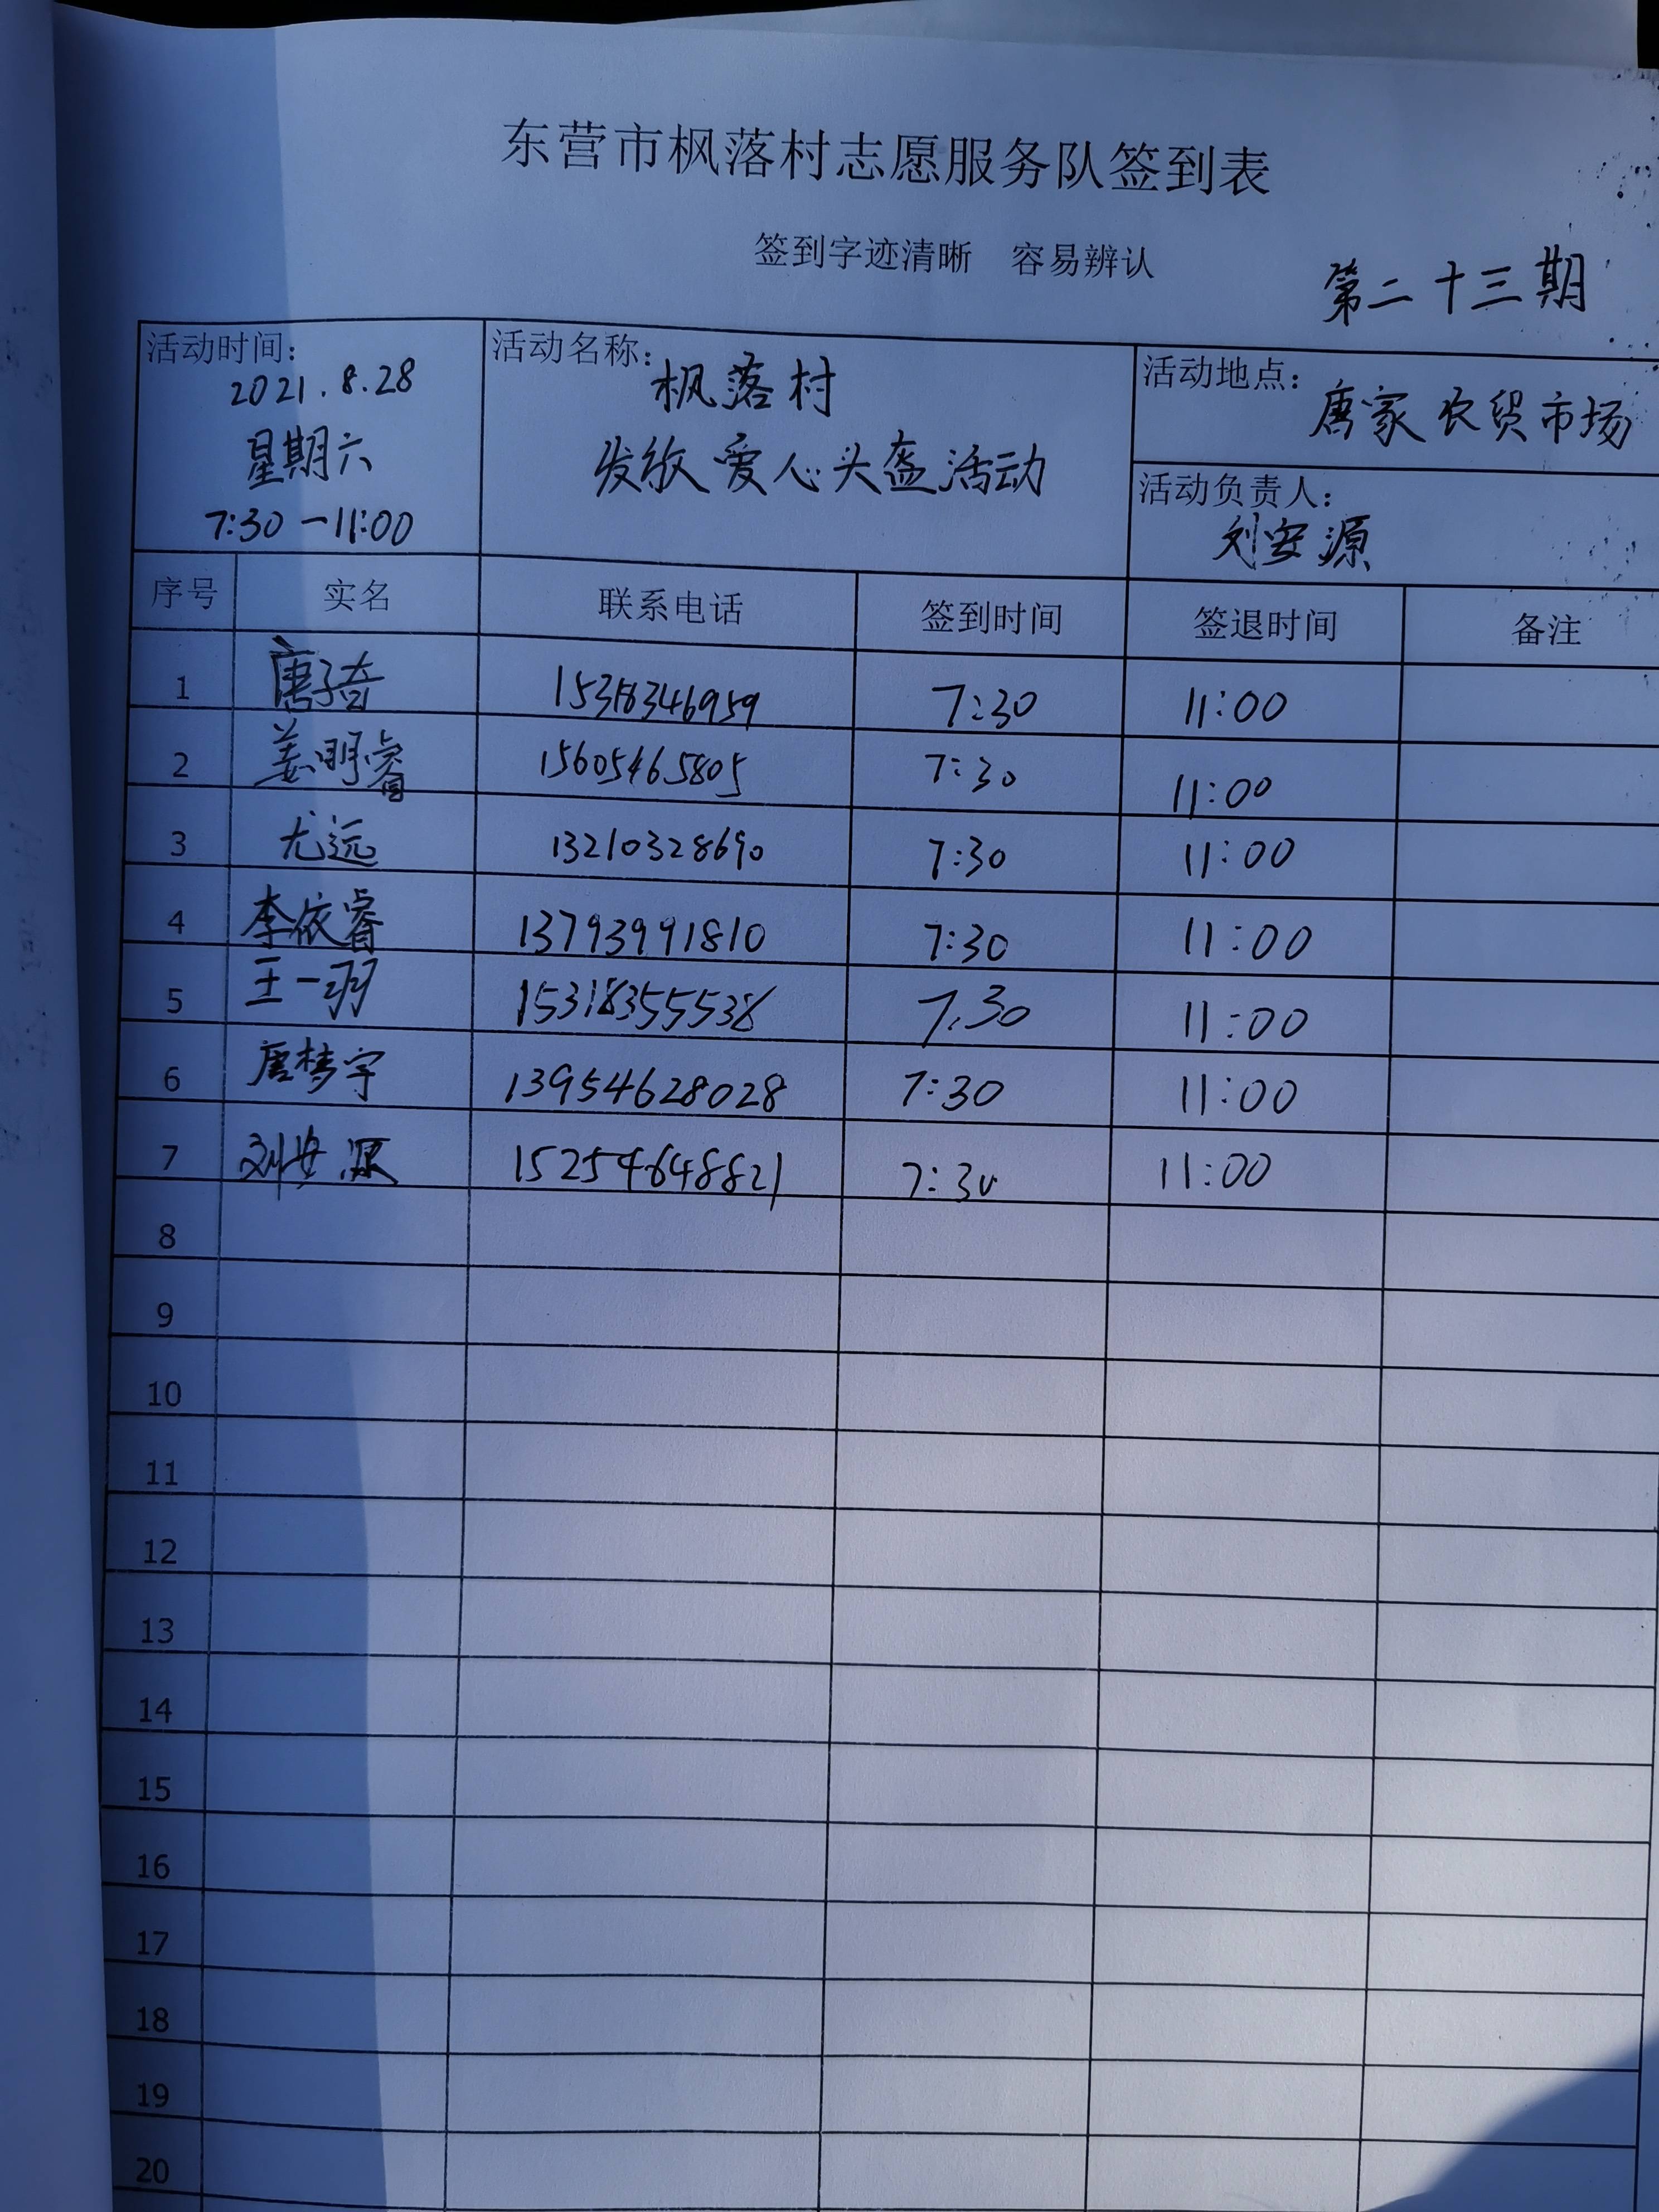 东营市枫落村志愿服务队签到表
签到字迹清晰 容易辨认
第二十三期
活动时间: 2021.8.28
星期六
7:30-11:00
活动名称: 枫落村
发放爱心头盔活动
活动地点: 唐家农贸市场
活动负责人:
刘安源
序号 实名 联系电话 签到时间 签退时间 备注
1 唐子奇 15318346959 7:30 11:00
2 姜明睿 15605465805 7:30 11:00
3 尤远 13210328690 7:30 11:00
4 李依睿 13793991810 7:30 11:00
5 王一羽 15318355538 7:30 11:00
6 唐梦宇 13954628028 7:30 11:00
7 刘安源 15254648821 7:30 11:00
8
9
10
11
12
13
14
15
16
17
18
19
20